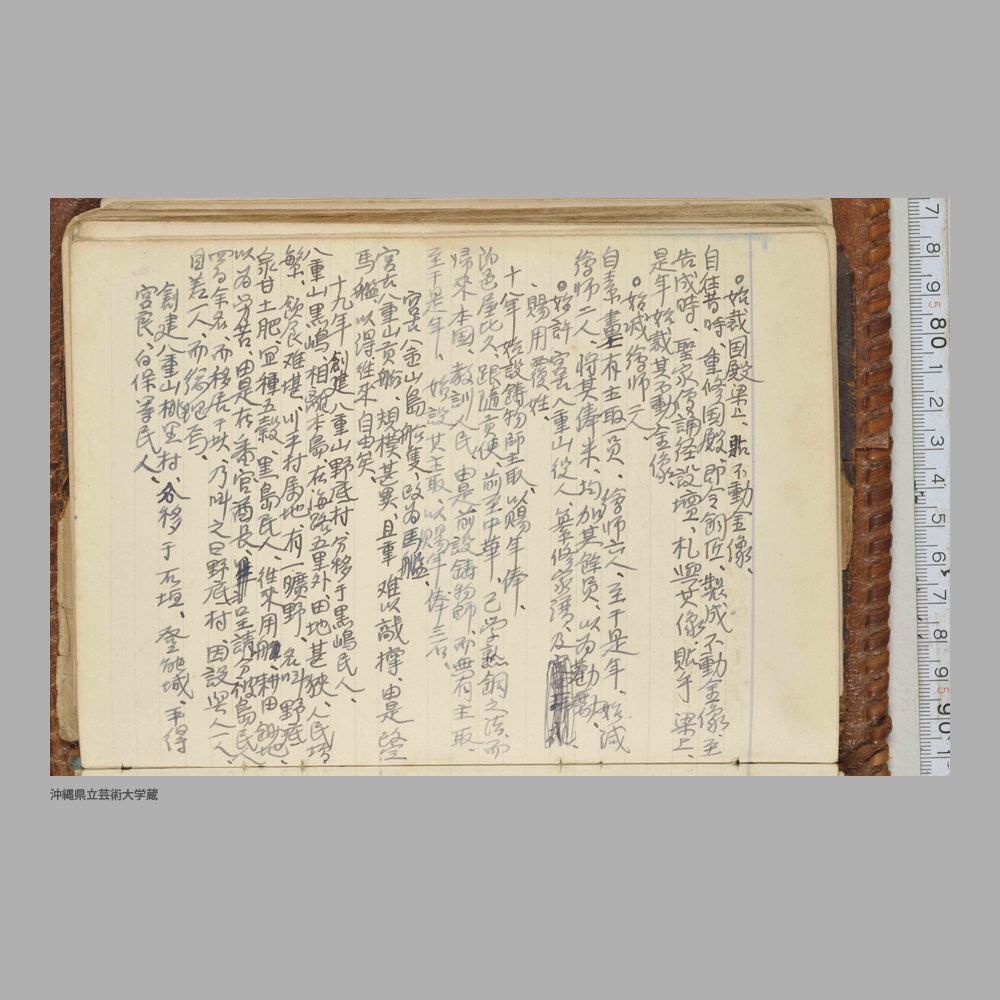 ○始裁国殿梁上、貼不動金像、
自往昔時、重修国殿、即令銅匠、製成不動金像、至
告成時、聖家僧誦経設壇、札與其像、貼于梁上、
是年始裁其不動金像、
○始減絵師二人
自素畫有主取一員、絵師六人、至于是年、始減
絵師二人、将其俸米、均加其餘員、以為勧勵、
○始許宮古八重山役人、纂修家譜、及
賜用覆姓、
十年、始設鋳物師主取、以賜年俸、
治邑屋比久、跟随貢使、前至中華、已学熟銅之法、而
帰來本国、教訓人民、由是前設鋳物師、而無有主取、
至于是年、始設其主取、以賜年俸三石、
宮古八重山島船隻、改為馬艦、
宮古八重山貢船、規模甚異、且重難以敲撑、由是改
馬艦以得往來自由矣、
十九年、創建八重山野底村、分移于黒嶋民人、
八重山黒嶋、相離本島、在海路五里外、田地甚狭、人民
繁、飲民難堪、川平村属地、有一曠野、名叫野底、
泉甘土肥、宜種五穀、黒島民人、往來用船、耕田鋤地、
以為労苦、由是在番官酋長、呈請分彼島民人
四百余名、而移居于此、乃叫之曰野底村、因設與人一人
目差一人、而
創建八重山桃里村、分移于石垣、登能城、平得
宮良、白保等民人、
7 8 9 5 80 1 2 3 4 5 6 7 8 9 5 90 1
沖縄県立芸術大学蔵